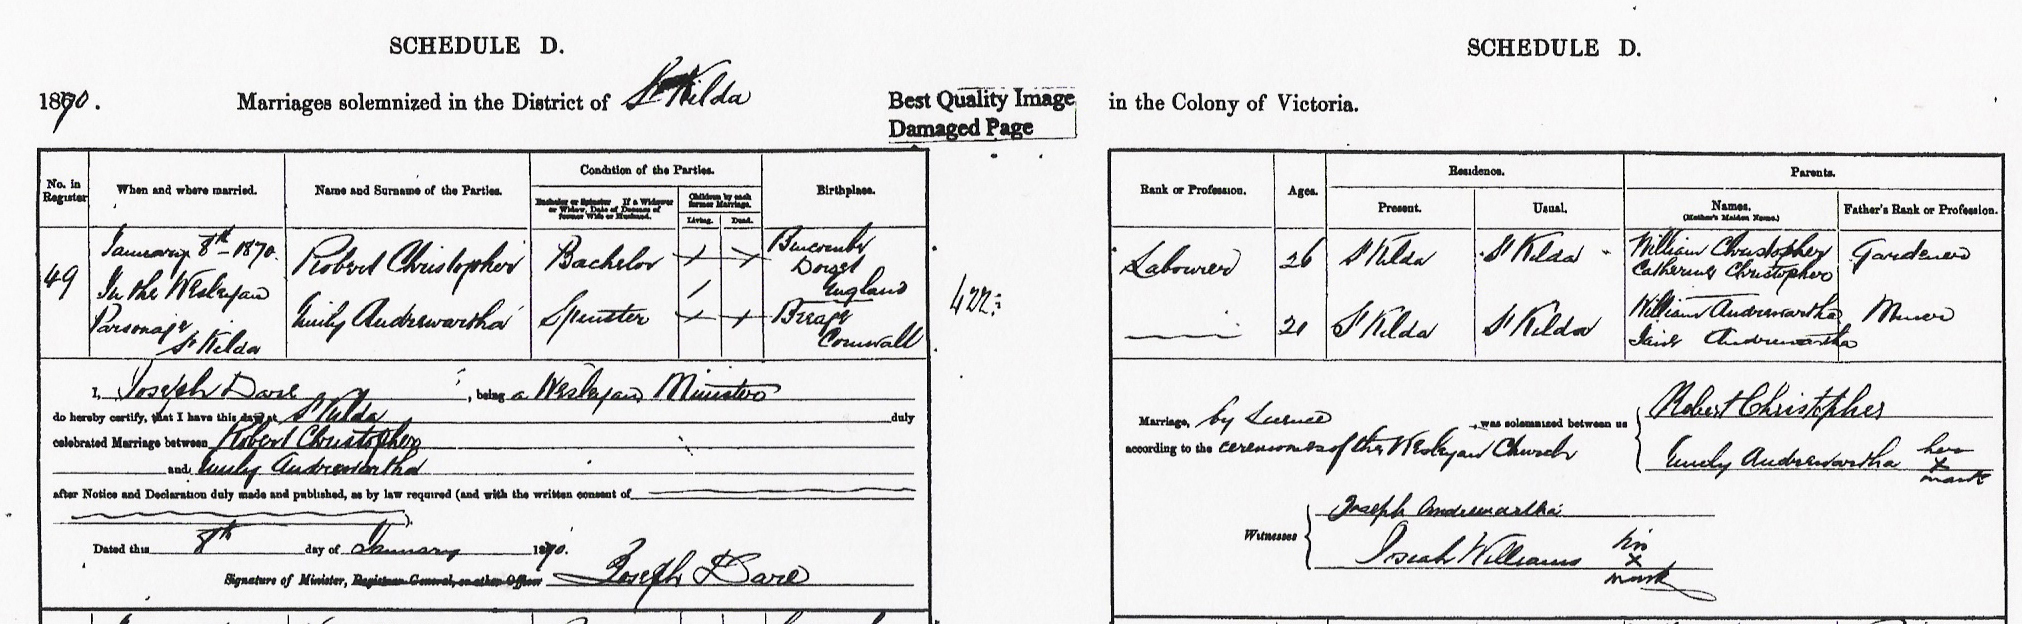 SCHEDULE D.
1870. Marriages solemnized in the District of St Kilda
Best Quality Image
Damaged Page
No. in Register
When and where married.
Name and Surname of the Parties.
Condition of the Parties.
Bachelor or Spinster If a Widower or Widow, Date of Decease of former Wife or Husband.
Children by each former Marriage.
Living. Dead.
Birthplace.
49
January 8th 1870.
In the Wesleyan
Parsonage
St Kilda
Robert Christopher
Bachelor
Dorset
England
Emily Andrewartha
Spinster
Breage
Cornwall
422
I, Joseph Dare, being a Wesleyan Minister
do hereby certify, that I have this day at St Kilda duly
celebrated Marriage between Robert Christopher
and Emily Andrewartha
after Notice and Declaration duly made and published, as by law required (and with the written consent of
Dated this 8th day of January 1870.
Signature of Minister, Registrar-General, or other Officer Joseph Dare
SCHEDULE D.
in the Colony of Victoria.
Rank or Profession.
Ages.
Residence.
Present. Usual.
Parents.
Names.
(Mother's Maiden Name.)
Father's Rank or Profession.
Labourer 26 St Kilda St Kilda William Christopher
Catherine Christopher
Gardener
21 St Kilda St Kilda William Andrewartha
Andrewartha
Miner
Marriage, by License was solemnized between us
according to the ceremonies of the Wesleyan Church
Robert Christopher
Emily Andrewartha her
x
mark
Witnesses
Joseph Andrewartha
Josiah Williams his
x
mark